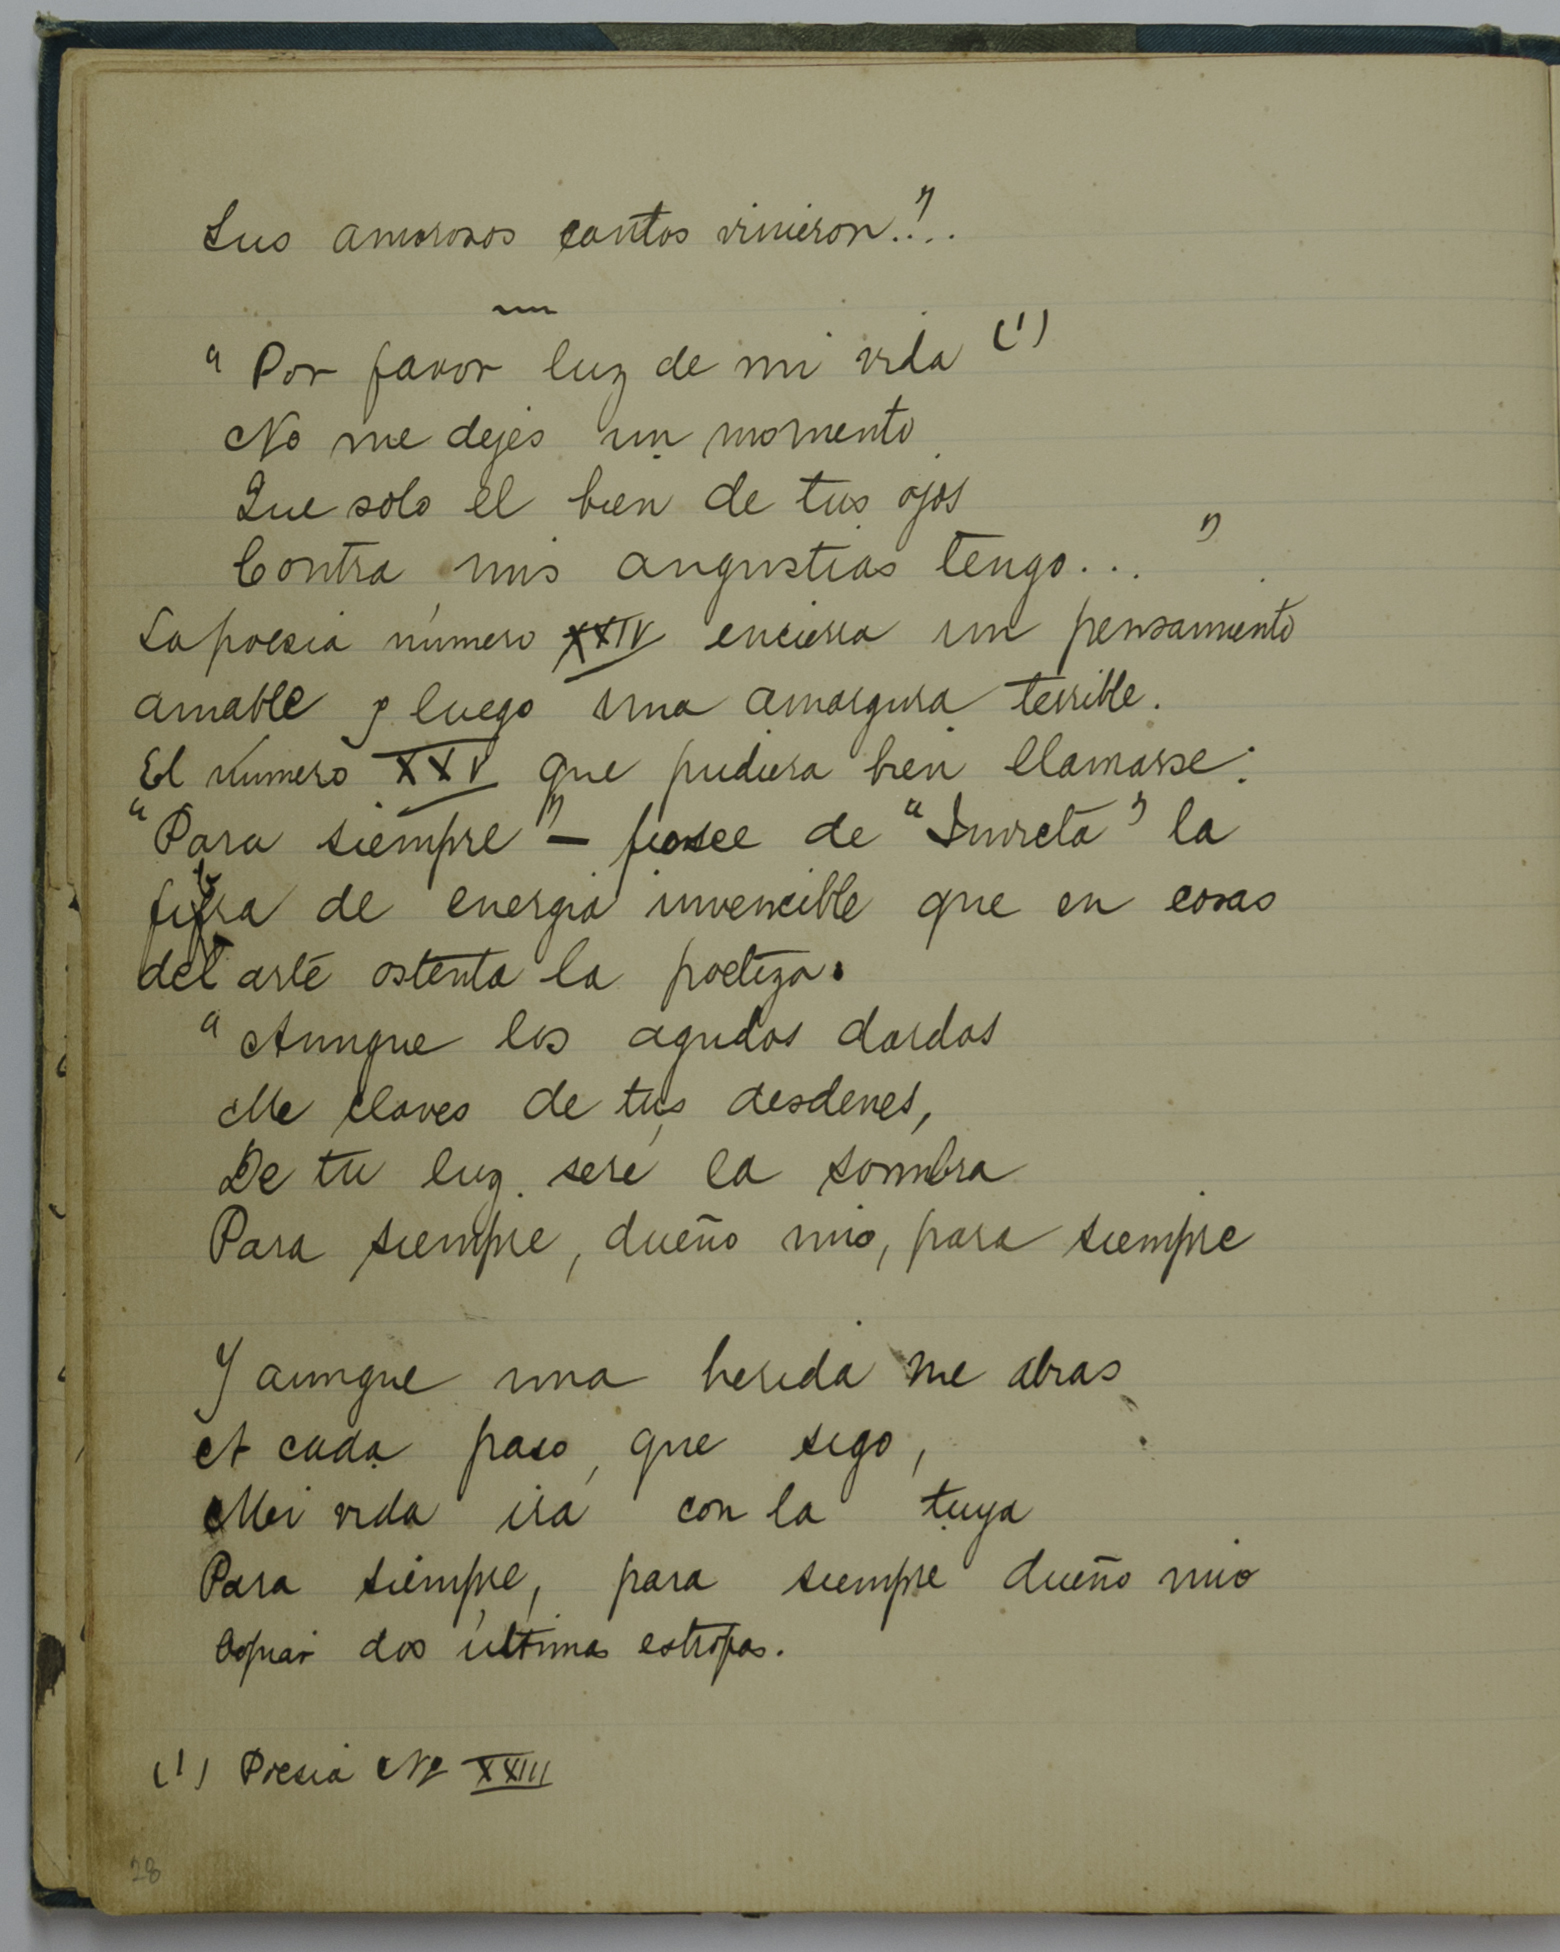 Sus amorosos cantos vinieron."...
" Por favor luz de mi vida (1)
No me dejes un momento
Que solo el bien de tus ojos
Contra mis angustias tengo... "
La poesia número XXIV encierra un pensamiento
amable y luego una amargura terrible.
El número XXV que pudiera bien llamarse:
"Para siempre" - posee de "Invicta" la
fibra de energia invencible que en cosas
del arte ostenta la poetiza.
" Aunque los agudos dardos
Me claves de tus desdenes,
De tu luz seré la sombra
Para siempre, dueño mio, para siempre
Y aunque una herida me abras
A cada paso, que sigo,
Mi vida irá con la tuya
Para siempre, para siempre dueño mio
Copiar dos últimas estrofas.
(1) Poesia No XXIII
28